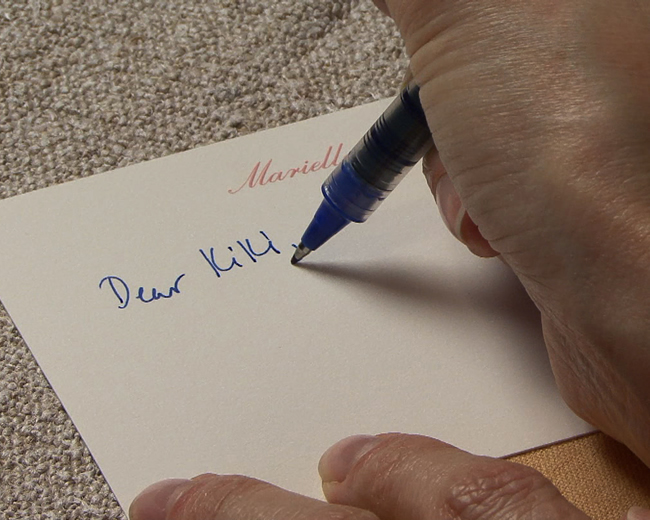 Mariell
Dear Kiki,